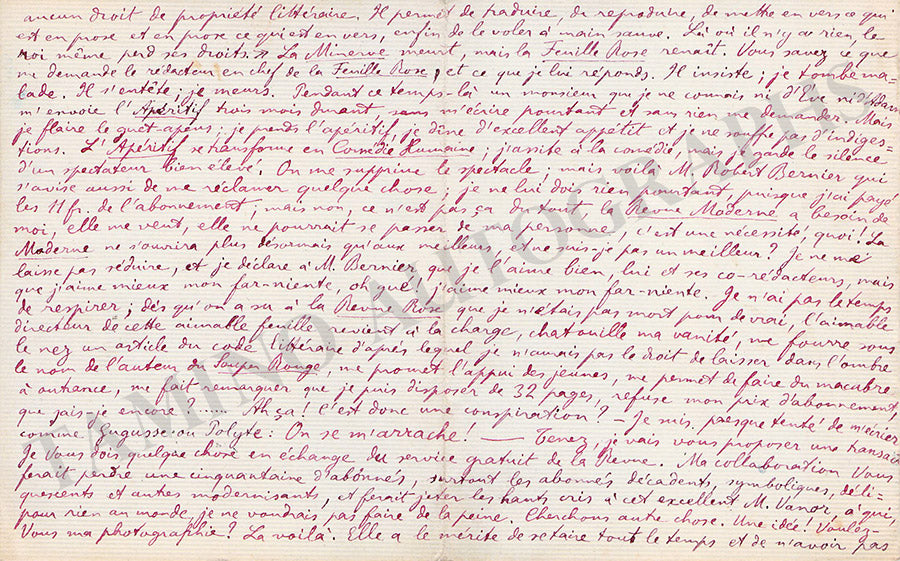 aucun droit de propriété littéraire. Il permet de traduire, de reproduire, de mettre en vers ce qui
est en prose et en prose ce qui est en vers, enfin de le voler à main sauve. Là où il n'y a rien, le
roi même perd ses droits. » La Minerve meurt, mais la Feuille Rose renaît. Vous savez ce que
me demande le rédacteur en chef de la Feuille Rose, et ce que je lui réponds. Il insiste ; je tombe ma-
lade. Il s'entête ; je meurs. Pendant ce temps-là un monsieur que je ne connais ni d'Eve ni d'Adam
m'envoie l'Apéritif trois mois durant, sans m'écrire pourtant et sans rien me demander. Mais
je flaire le guet-apens ; je prends l'apéritif, je dîne d'excellent appétit et je ne souffre pas d'indiges-
tions. L'Apéritif se transforme en Comédie Humaine ; j'assite à la comédie, mais je garde le silence
d'un spectateur bien elevé. On me supprime le spectacle ; mais voilà M. Robert Bernier qui
s'avise aussi de me réclamer quelque chose ; je ne lui dois rien pourtant, puisque j'ai payé
les 11 fr. de l'abonnement ; mais non, ce n'est pas ça du tout la Revue Moderne a besoin de
moi, elle me veut, elle ne pourrait se passer de ma personne, c'est une nécessité, quoi ! La
Moderne ne s'ouvrira plus désormais qu'aux meilleurs et ne suis-je pas un meilleur ? Je ne me
laisse pas séduire, et je déclare à M. Bernier que je l'aime bien, lui et ses co-rédacteurs, mais
que j'aime mieux mon far-niente, oh qué ! j'aime mieux mon far-niente. Je n'ai pas le temps
de respirer ; dès qu'on a su à la Revue Rose que je n'étais pas mort pour de vrai, l'aimable
directeur de cette aimable feuille revient à la charge, chatouille ma vanité, me fourre sous
le nez un article du code littéraire d'après lequel je n'aurais pas le droit de laisser dans l'ombre
le nom de l'auteur du Souper Rouge, me promet l'appui des jeunes, me permet de faire du macabre
à outrance, me fait remarquer que je puis disposer de 32 pages, refuse mon prix d'abonnement,
que sais-je encore ? ...... Ah ça ! C'est donc une conspiration ? — Je suis presque tenté de m'écrier
comme Gugusse ou Polyte : On se m'arrache. — Tenez, je vais vous proposer une transact
Je Vous dois quelque chose en échange du service gratuit de la Revue. Ma collaboration Vous
ferait perdre une cinquantaine d'abonnés, surtout les abonnés décadents, symboliques, déli-
quescents et autres modernisants, et ferait jeter les hauts cris à cet excellent M. Vanor, à qui,
pour rien au monde, je ne voudrais pas faire de la peine. Cherchons autre chose. Une idée ! Voulez-
Vous ma photographie ? La voilà. Elle a le mérite de se taire tout le temps et de n'avoir pas
TAMINO AUTOGRAPHS